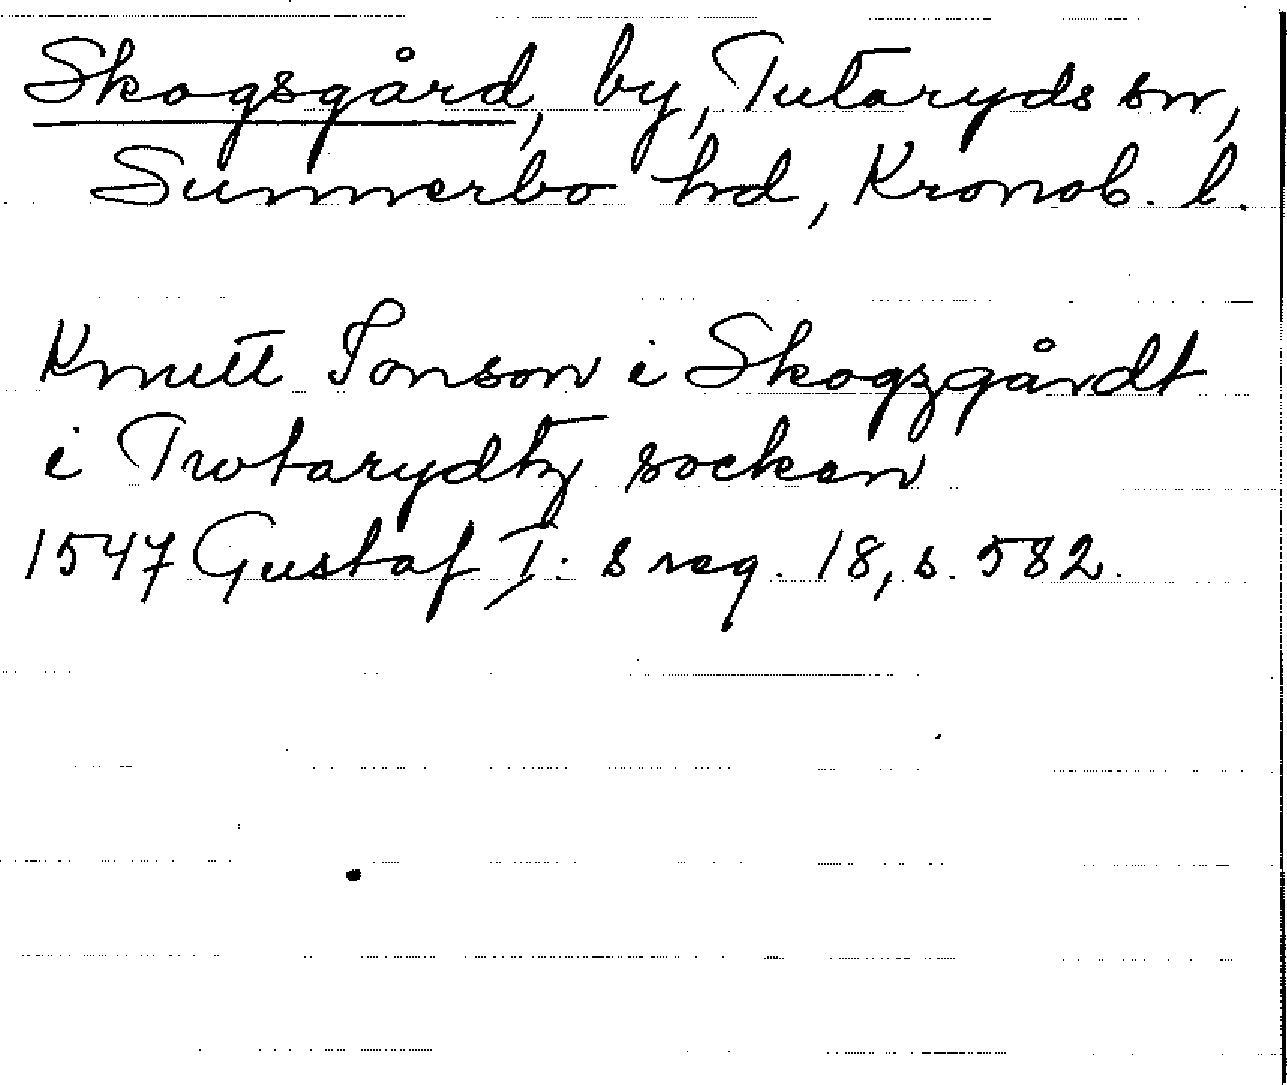 Skogsgård, by, Tutaryds sn,
Sunnerbo hd, Kronob. l.
Knutt Jonson i Skogzgårdt
i Twtarydtz socken
1547 Gustaf I:s reg. 18, s. 582.